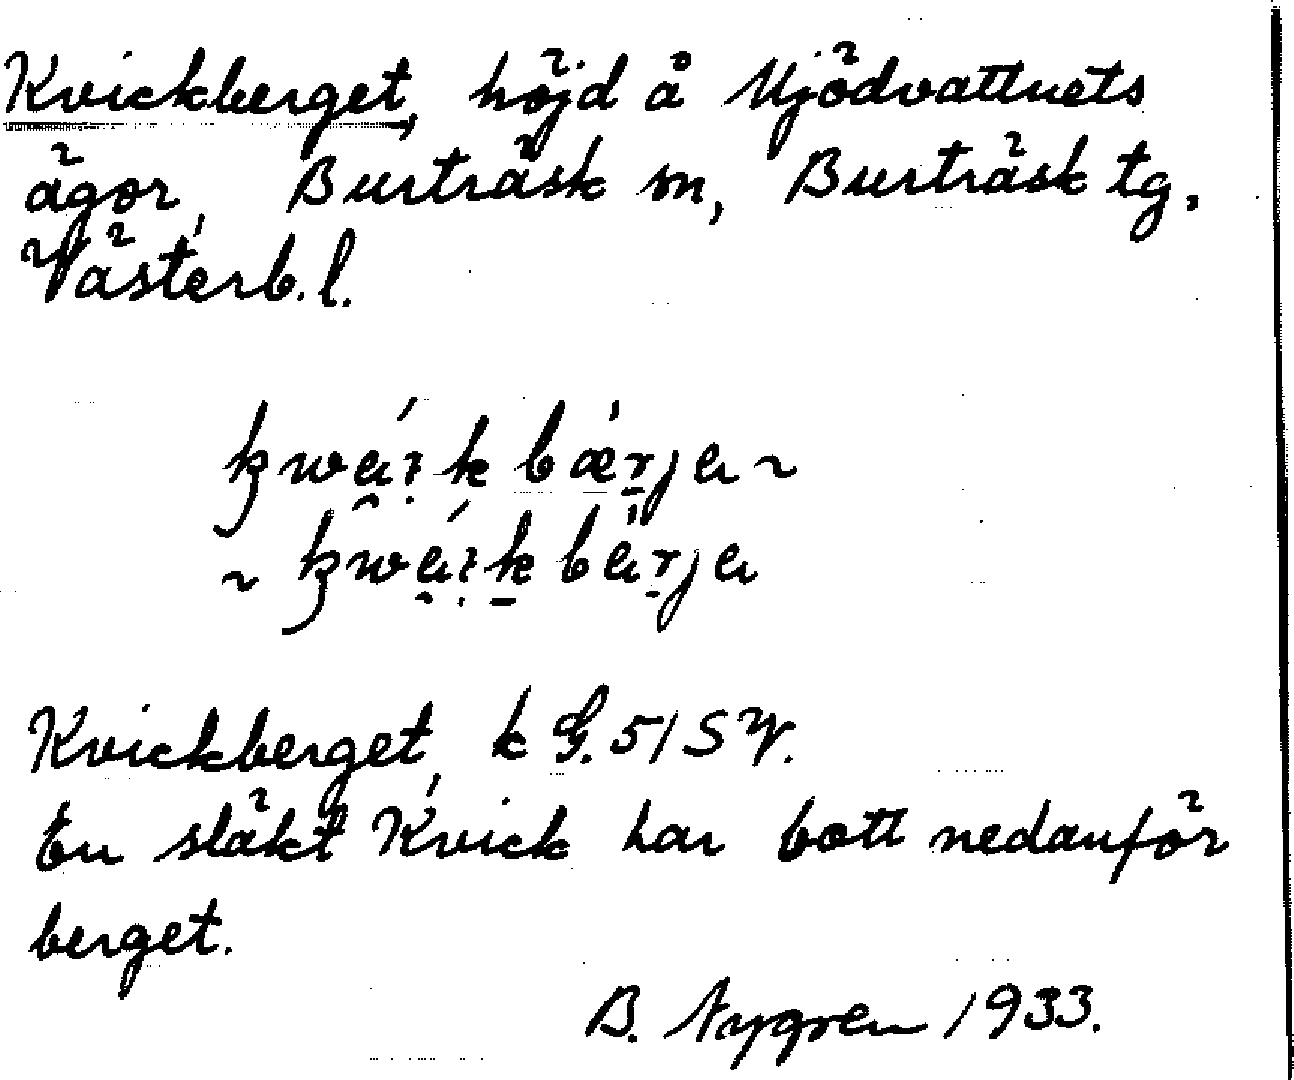 Kvickberget, höjd å Mjödvattnets
ägor, Burträsk sn, Burträsk tg,
Västerb. l.
Kvickberget, k G. 51 SV.
En släkt Kvick har bott nedanför
berget.
B. Nygren 1933.